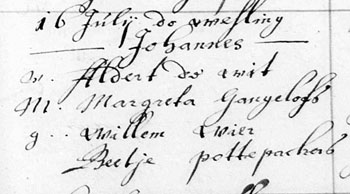 16 Julij do wesling
Johannes
v. Aldert de wit
M. Margreta Gangelofs
g. willem wier
Beetje pottepackers